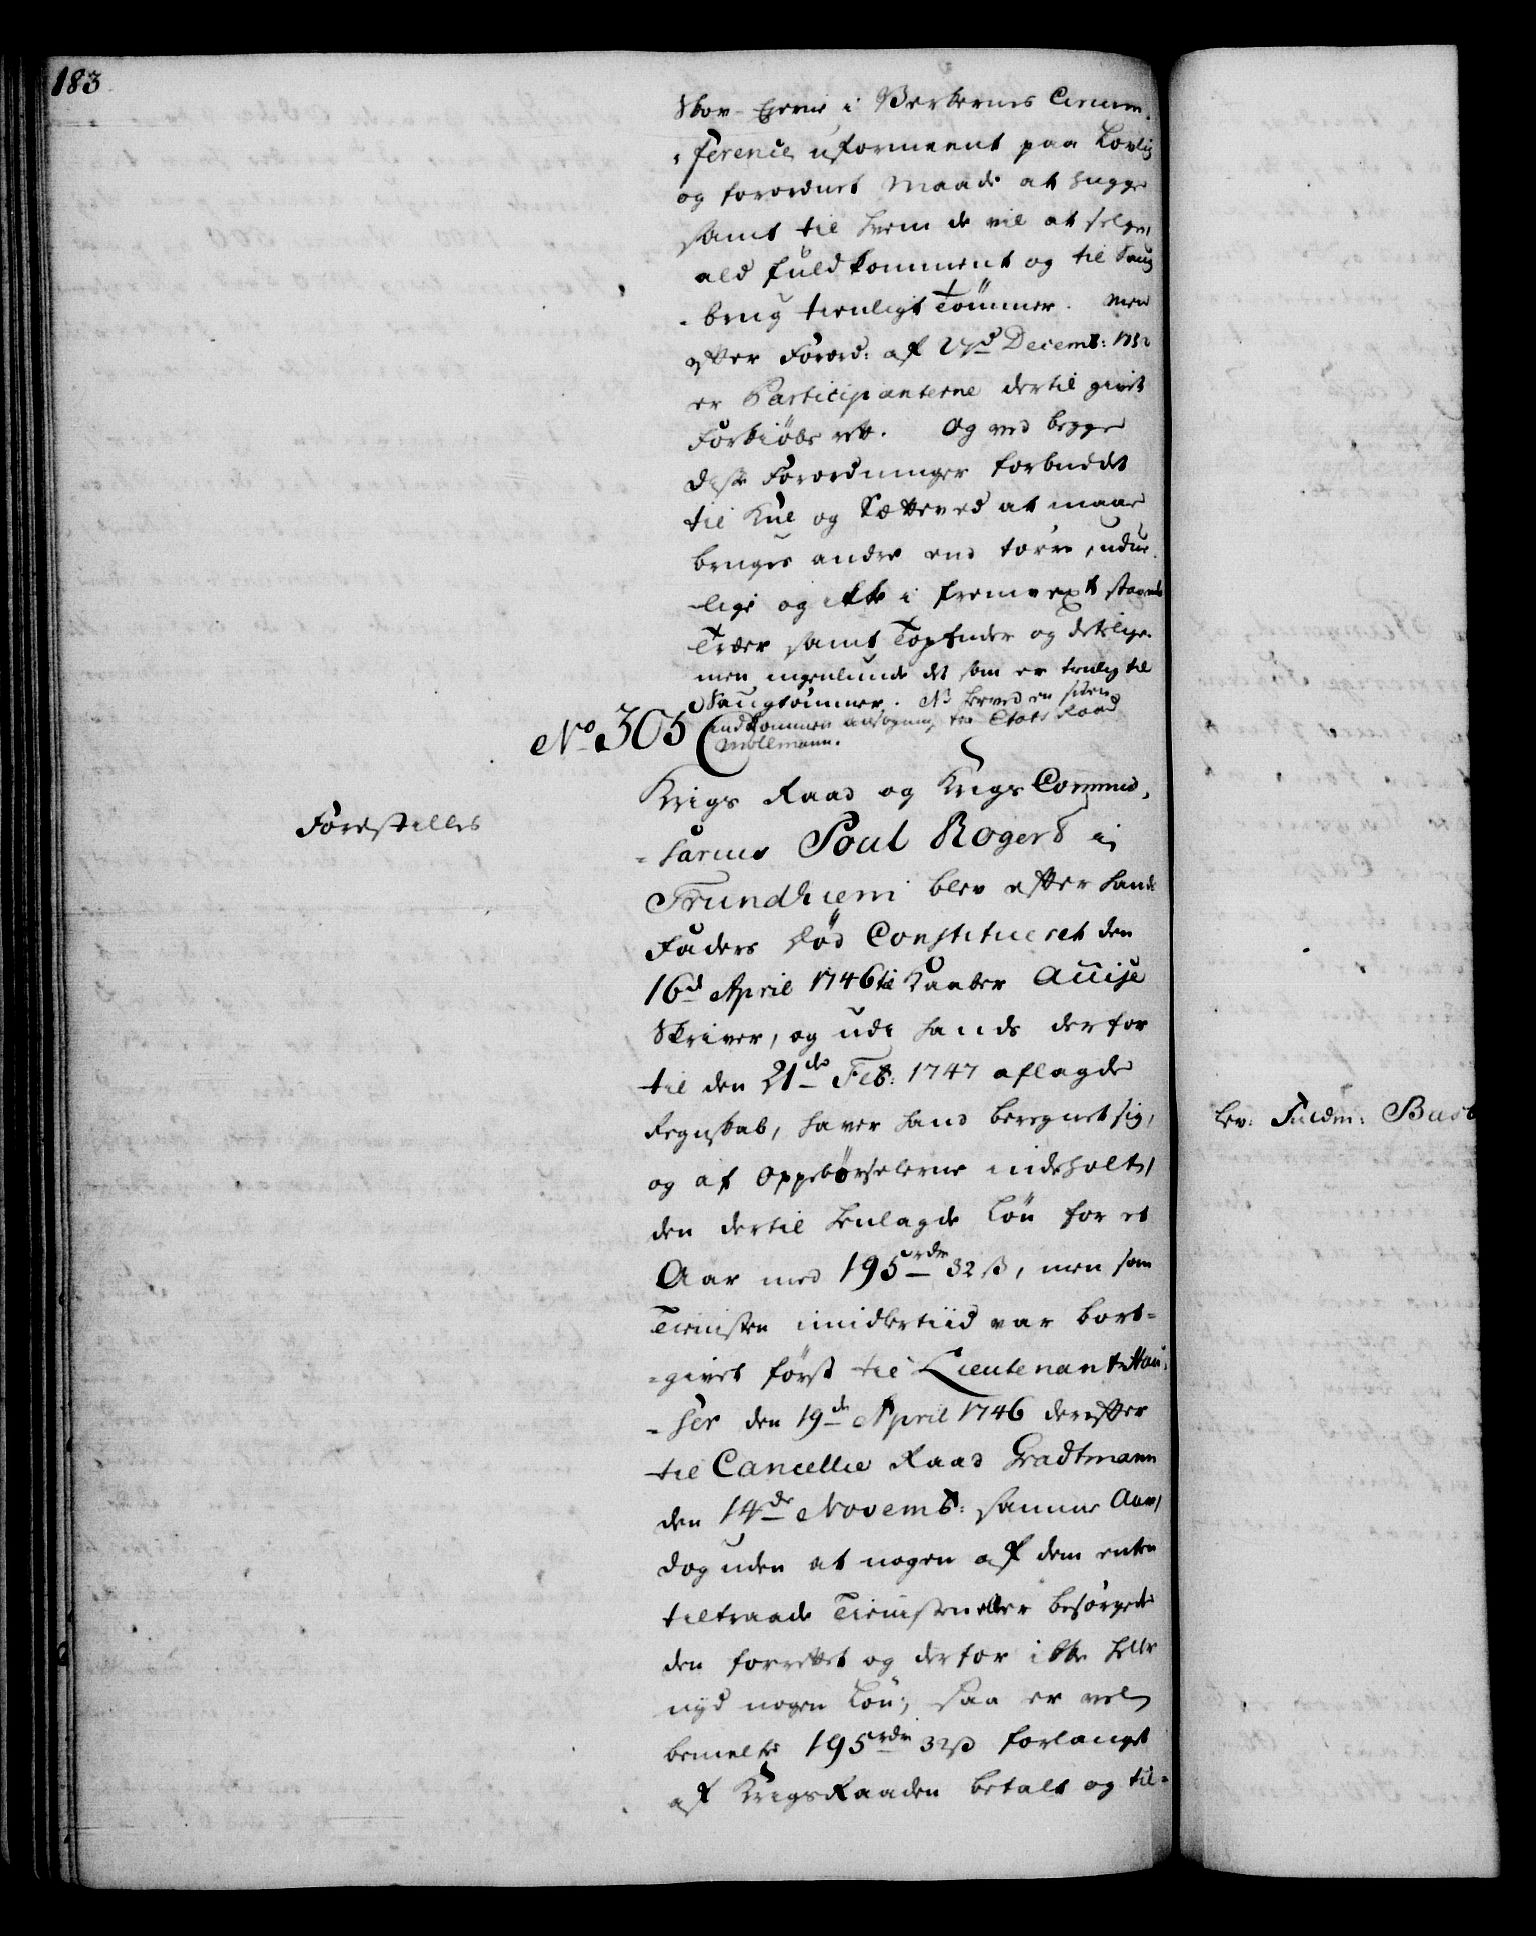 183
Skov-Ejerne i Verkernes Circum-
ference uformeent paa Lovlig
og forordnet Maade at hugge
samt til hvem de vil at selge,
ald fuldkomment og til Saug
-brug tienligt Tømmer. Men
efter Forord: af 27d Decemb: 1732
er Participanterne dertil givet
Forkiøbs rett. Og ved begge
disse Forordninger forbudet
til Kul og Sætteved at maae
bruges andre end tørre, udue-
lige og ikke i fremvext staaende
Træer samt Topender og deslige.
men ingenlunde det som er tienlig til
Saugtømmer. NB herved en siden
indkommen ansøgning fra Etats Raad
Möllmann.
No 305
Forestilles
Krigs Raad og Krigs Commis-
sarius Poul Rogert i
Trundhiem blev efter hands
Faders Død Constitueret den
16d April 1746 til Kaaber Accise
Skriver, og udi hands derfor
til den 21de Feb: 1747 aflagde
Regnskab, haver hand beregnet sig,
og af Oppebørselerne indeholt,
den dertil henlagde Løn for et
Aar med 195 rdr 32 ß, men som
Tienisten imidlertiid var bort-
-givet først til Lieutenant Hau-
-ser den 19de April 1746 derefter
til Cancellie Raad Gradtmann
den 14de Novemb: samme Aar,
dog uden at nogen af dem enten
tiltraade Tienisten eller besørgede
den forrettet og derfor ikke heller
nyd nogen Løn; saa er vel
bemelte 195 rdr 32 ß forlanget
af Krigs Raaden betalt og til-
Lev: Fuldm: Busb